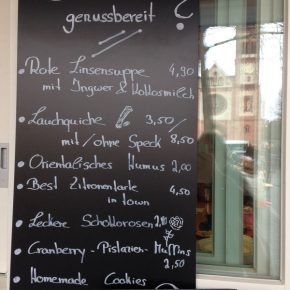 genussbereit ?
• Rote Linsensuppe 4,90
mit Ingwer & Kokosmilch
• Lauchquiche 3,50/
mit/ohne Speck 8,50
• Orientalisches Humus 2,00
• Best Zitronentarte 4,50
in town
• Leckere Schokorosen 2,80
• Cranberry-Pistazien-Muffins
2,50
• Homemade Cookies